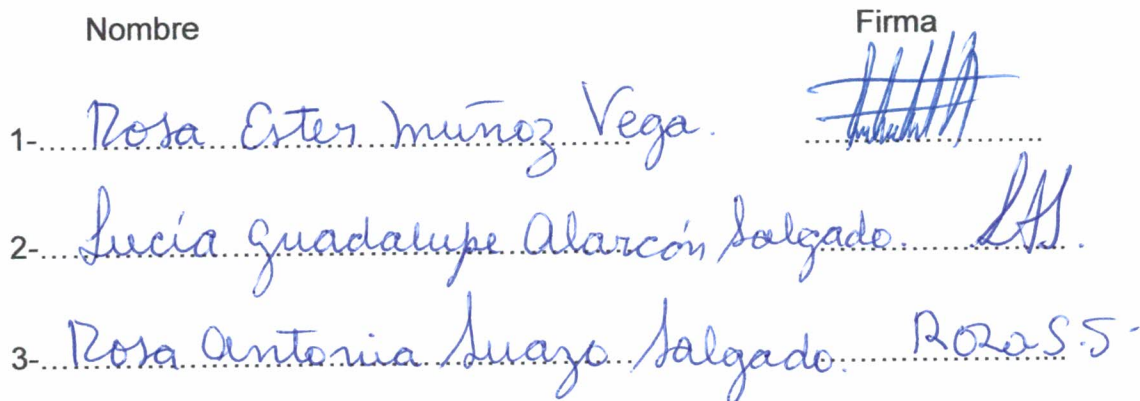 Nombre Firma
1- Rosa Ester Muñoz Vega.
2- Lucía Guadalupe Alarcón Salgado. LAS.
3- Rosa Antonia Suazo Salgado. Roza S.S-